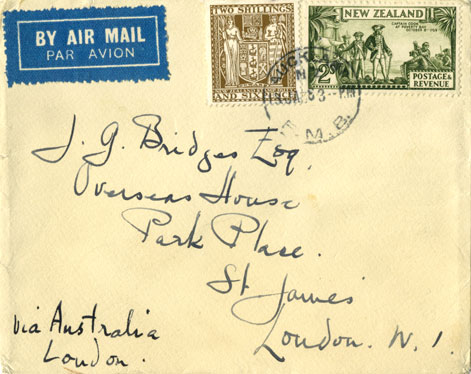 BY AIR MAIL
PAR AVION
TWO SHILLINGS
AND SIXPENCE
NEW ZEALAND
CAPTAIN COOK
AT POVERTY BAY
OCTOBER 9 1769
2/-
POSTAGE &
REVENUE
N.Z.
E.M.B.
J. G. Bridges Esq.
Overseas House
Park Place.
St James
London. W. 1.
via Australia
London.